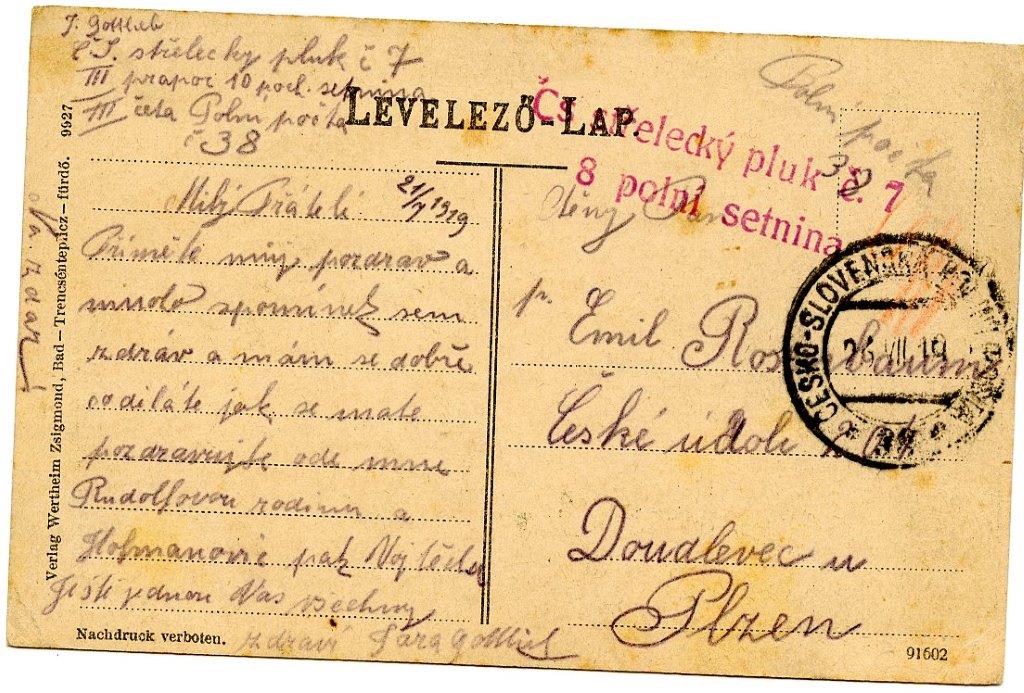 J. Gottlieb
Č.S. střelecky pluk č 7
III prapor 10 poch. setnina
III četa Polní pošta
č 38
LEVELEZŐ-LAP.
Čs. střelecký pluk č. 7
8 polní setnina
Polní pošta
38
21/7 1919
Milý Přátelé
Přiměte můj pozdrav a
mnoho spomínek sem
zdráv a mám se dobře
co diláte jak se mate
pozdravujte ode mne
Rudolfovou rodinu a
Hofmanovic pak Vojtěcha
Ještě jednou Vas všechny
zdraví Gottlieb
Na Zdar
Ctěny Pan
p. Emil Rosenbaum
České údolí
Doudlevec u
Plzen
ČESKO-SLOVENSKÁ POLNÍ POŠTA
26.VII.19
38
9927
Verlag Wertheim Zsigmond, Bad-Trencsénteplicz-fürdő.
Nachdruck verboten.
91602